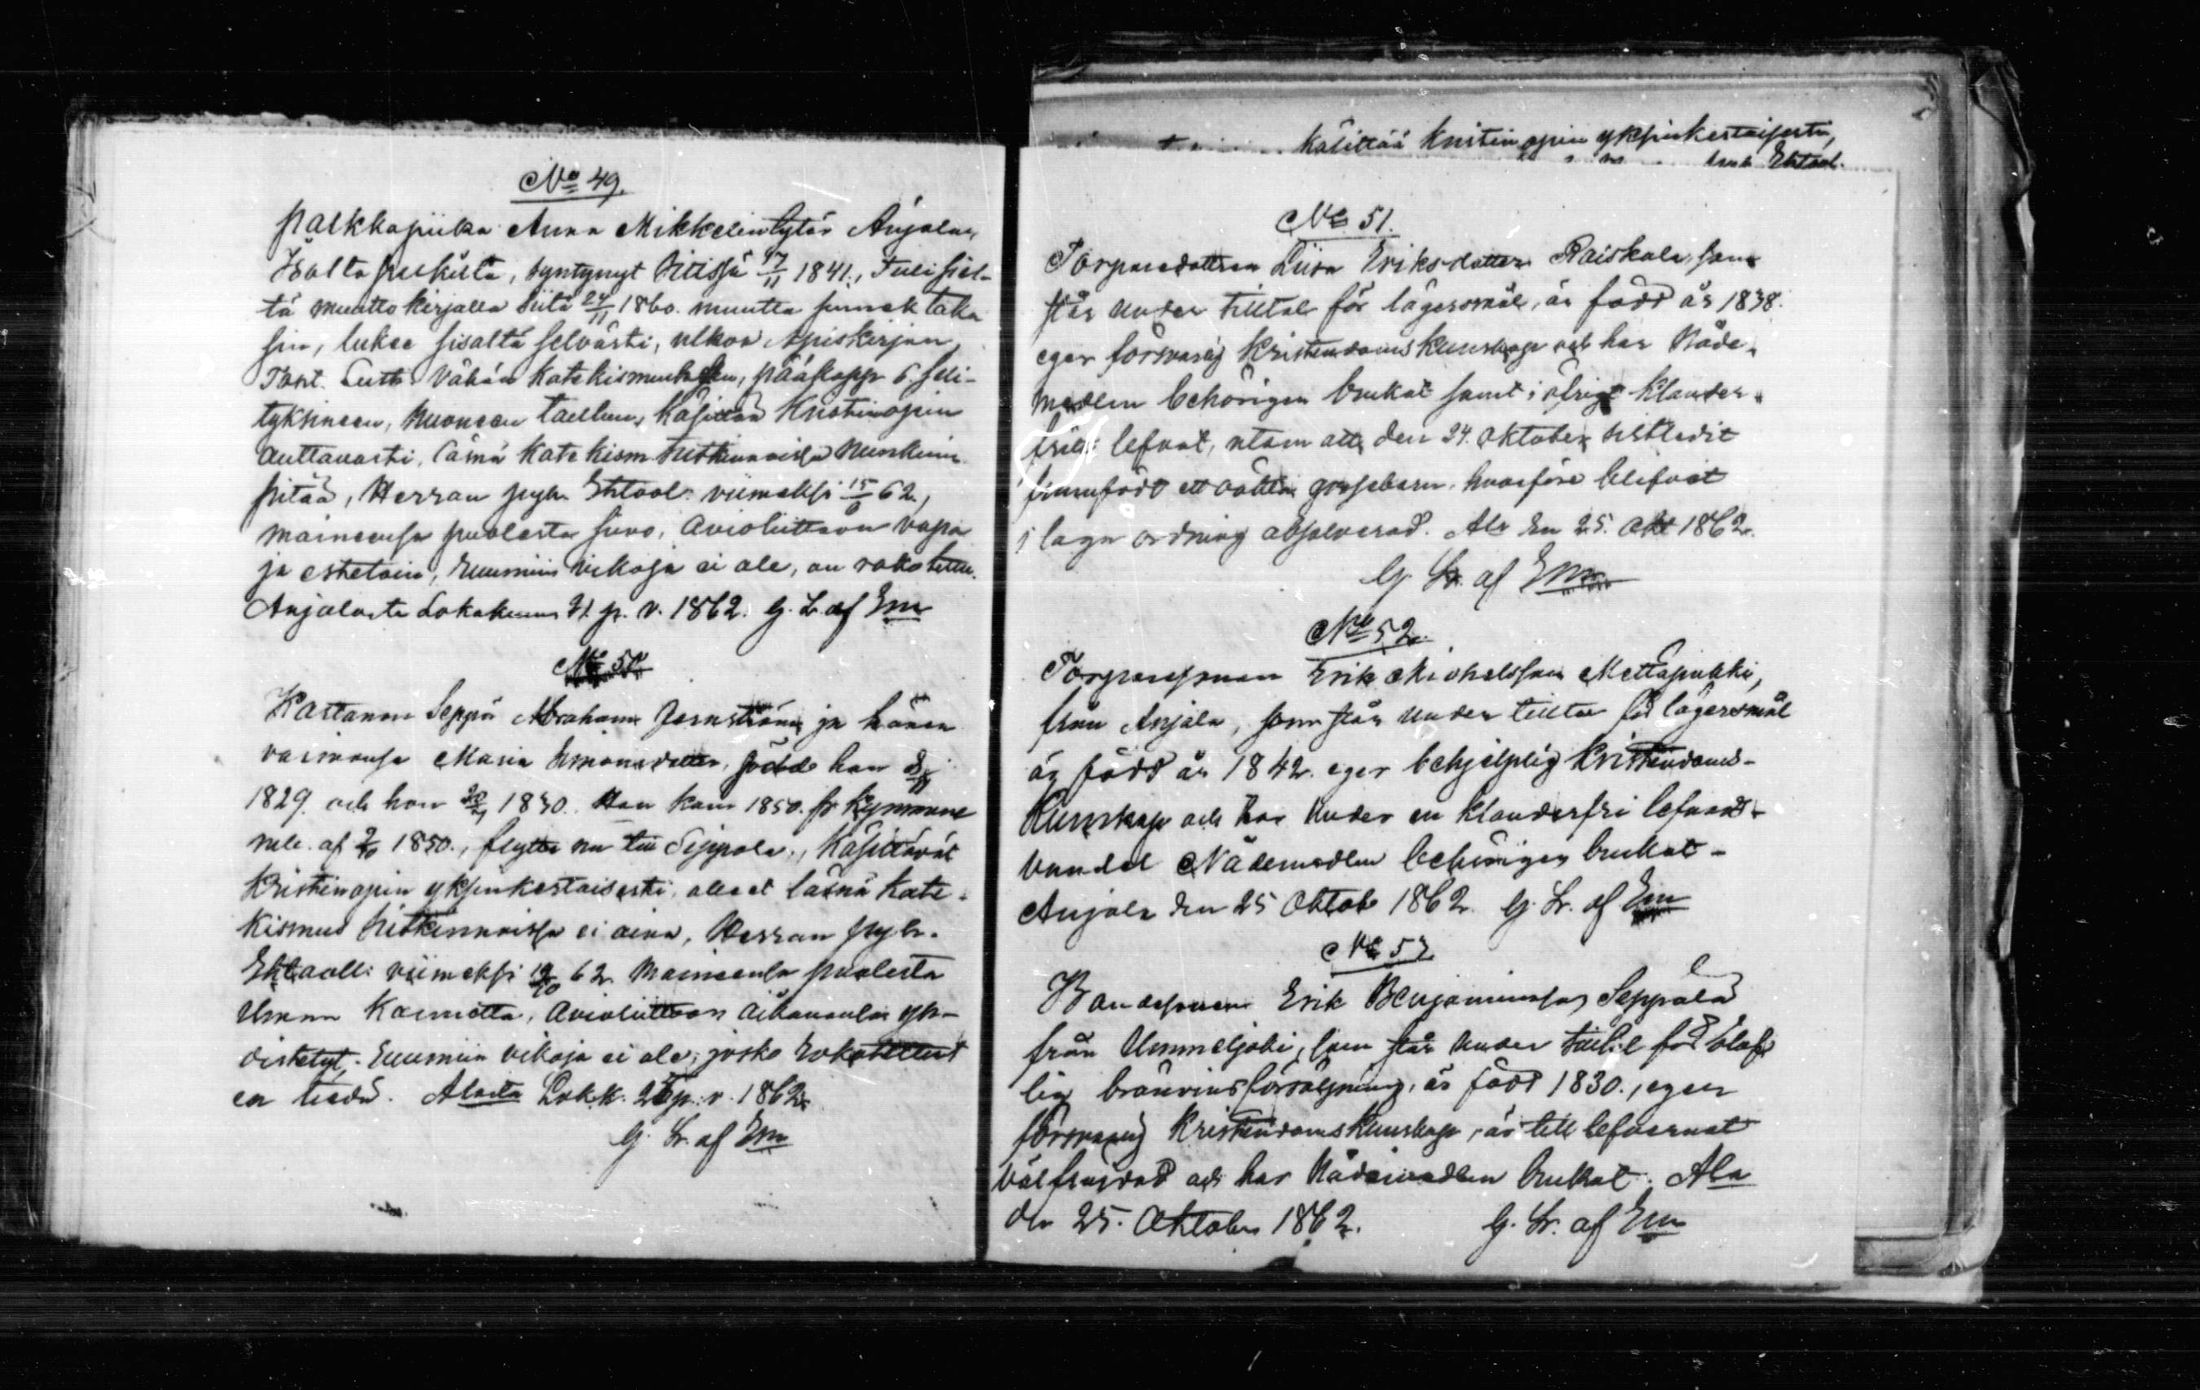 No 49.
Palkkapiika Anna Mikkelintytär Anjalan
Woltaperskista, syntynyt Sitissä 17/11 1841, Tuli siel-
tä muuttokirjalla siitä 24/11 1860. muutta sinnek taka
sin, lukee sisältä selvästi, ulkoa Apiskirjan,
Toht. Luth. vähän Katekismuksen, pääkapp 6 seli-
tyksineen, Huoneen taulun, käsittää Kristinopin
auttavasti, läsnä Katekism tutkinnoissa Nuhkiin
pitää, Herran pyh. Ehtool. viimeksi 15/6 62,
maineensa puolesta hyvä, avioliittoon vapa
ja esteetoin, ruumiin vikoja ei ole, on rokotettu.
Anjalasta Lokakuun 21 p. v. 1862. G. Lr. af Em
No 50
Kartanon Seppä Abraham Jernström ja hänen
vaimonsa Maria Simonsdotter, född han
1829. och hon 1830. Han kom 1850. fr Kymmene
mb. af 2/10 1850., flytta nu till Seppala., Käsittävät
Kristinopin yksinkertaisesti, olleet läsnä Kate-
kismus tutkinnoissa ei aina, Herran pyh.
Ehtooll: viimeksi 62. Maineensa puolesta
ilman Kannetta, Avioliittoon aikanansa yh-
distetyt. Ruumiin vikoja ei ole, josko Rokotettut
en tiedä. Alasta Lokk. 25 p. v. 1862.
G. Lr. af Em
Käsittää Kristinopin yksinkertaisesti,
Ehtool.
No 51.
Torparedottern Liisa Eriksdotter Raiskala, som
står under tilltal för lägersmål, är född år 1838.
eger försvarlig Kristendomskunskap och har Nåde-
medlen behörigen brukat samt i öfrigt klander-
fritt lefvat, utom att den 24. Oktober sistledit
framfödt ett oäkta gossebarn, hvarföre blifvit
i laga ordning absolverad. Ala den 25. Okt 1862.
G. Lr. af Em
No 52.
Torparesonen Erik Michelsson Mettäpukki,
från Anjala, som står under tilltal för lägersmål
är född år 1842. eger behjelplig Kristendoms-
Kunskap och har under en klanderfri lefnads-
vandel Nådemedlen behörigen brukat -
Anjala den 25 Oktob 1862 G. Lr. af Em
No 53
Bondesonen Erik Benjaminsson Seppälä
från Ummeljoki, som står under tilltal för olaf
lig bränvinsförsäljning, är född 1830., eger
försvarlig Kristendomskunskap, är till lefvernet
välfrejdad och har Nådemedlen brukat. Ala
den 25. Oktober 1862. G. Lr. af Em